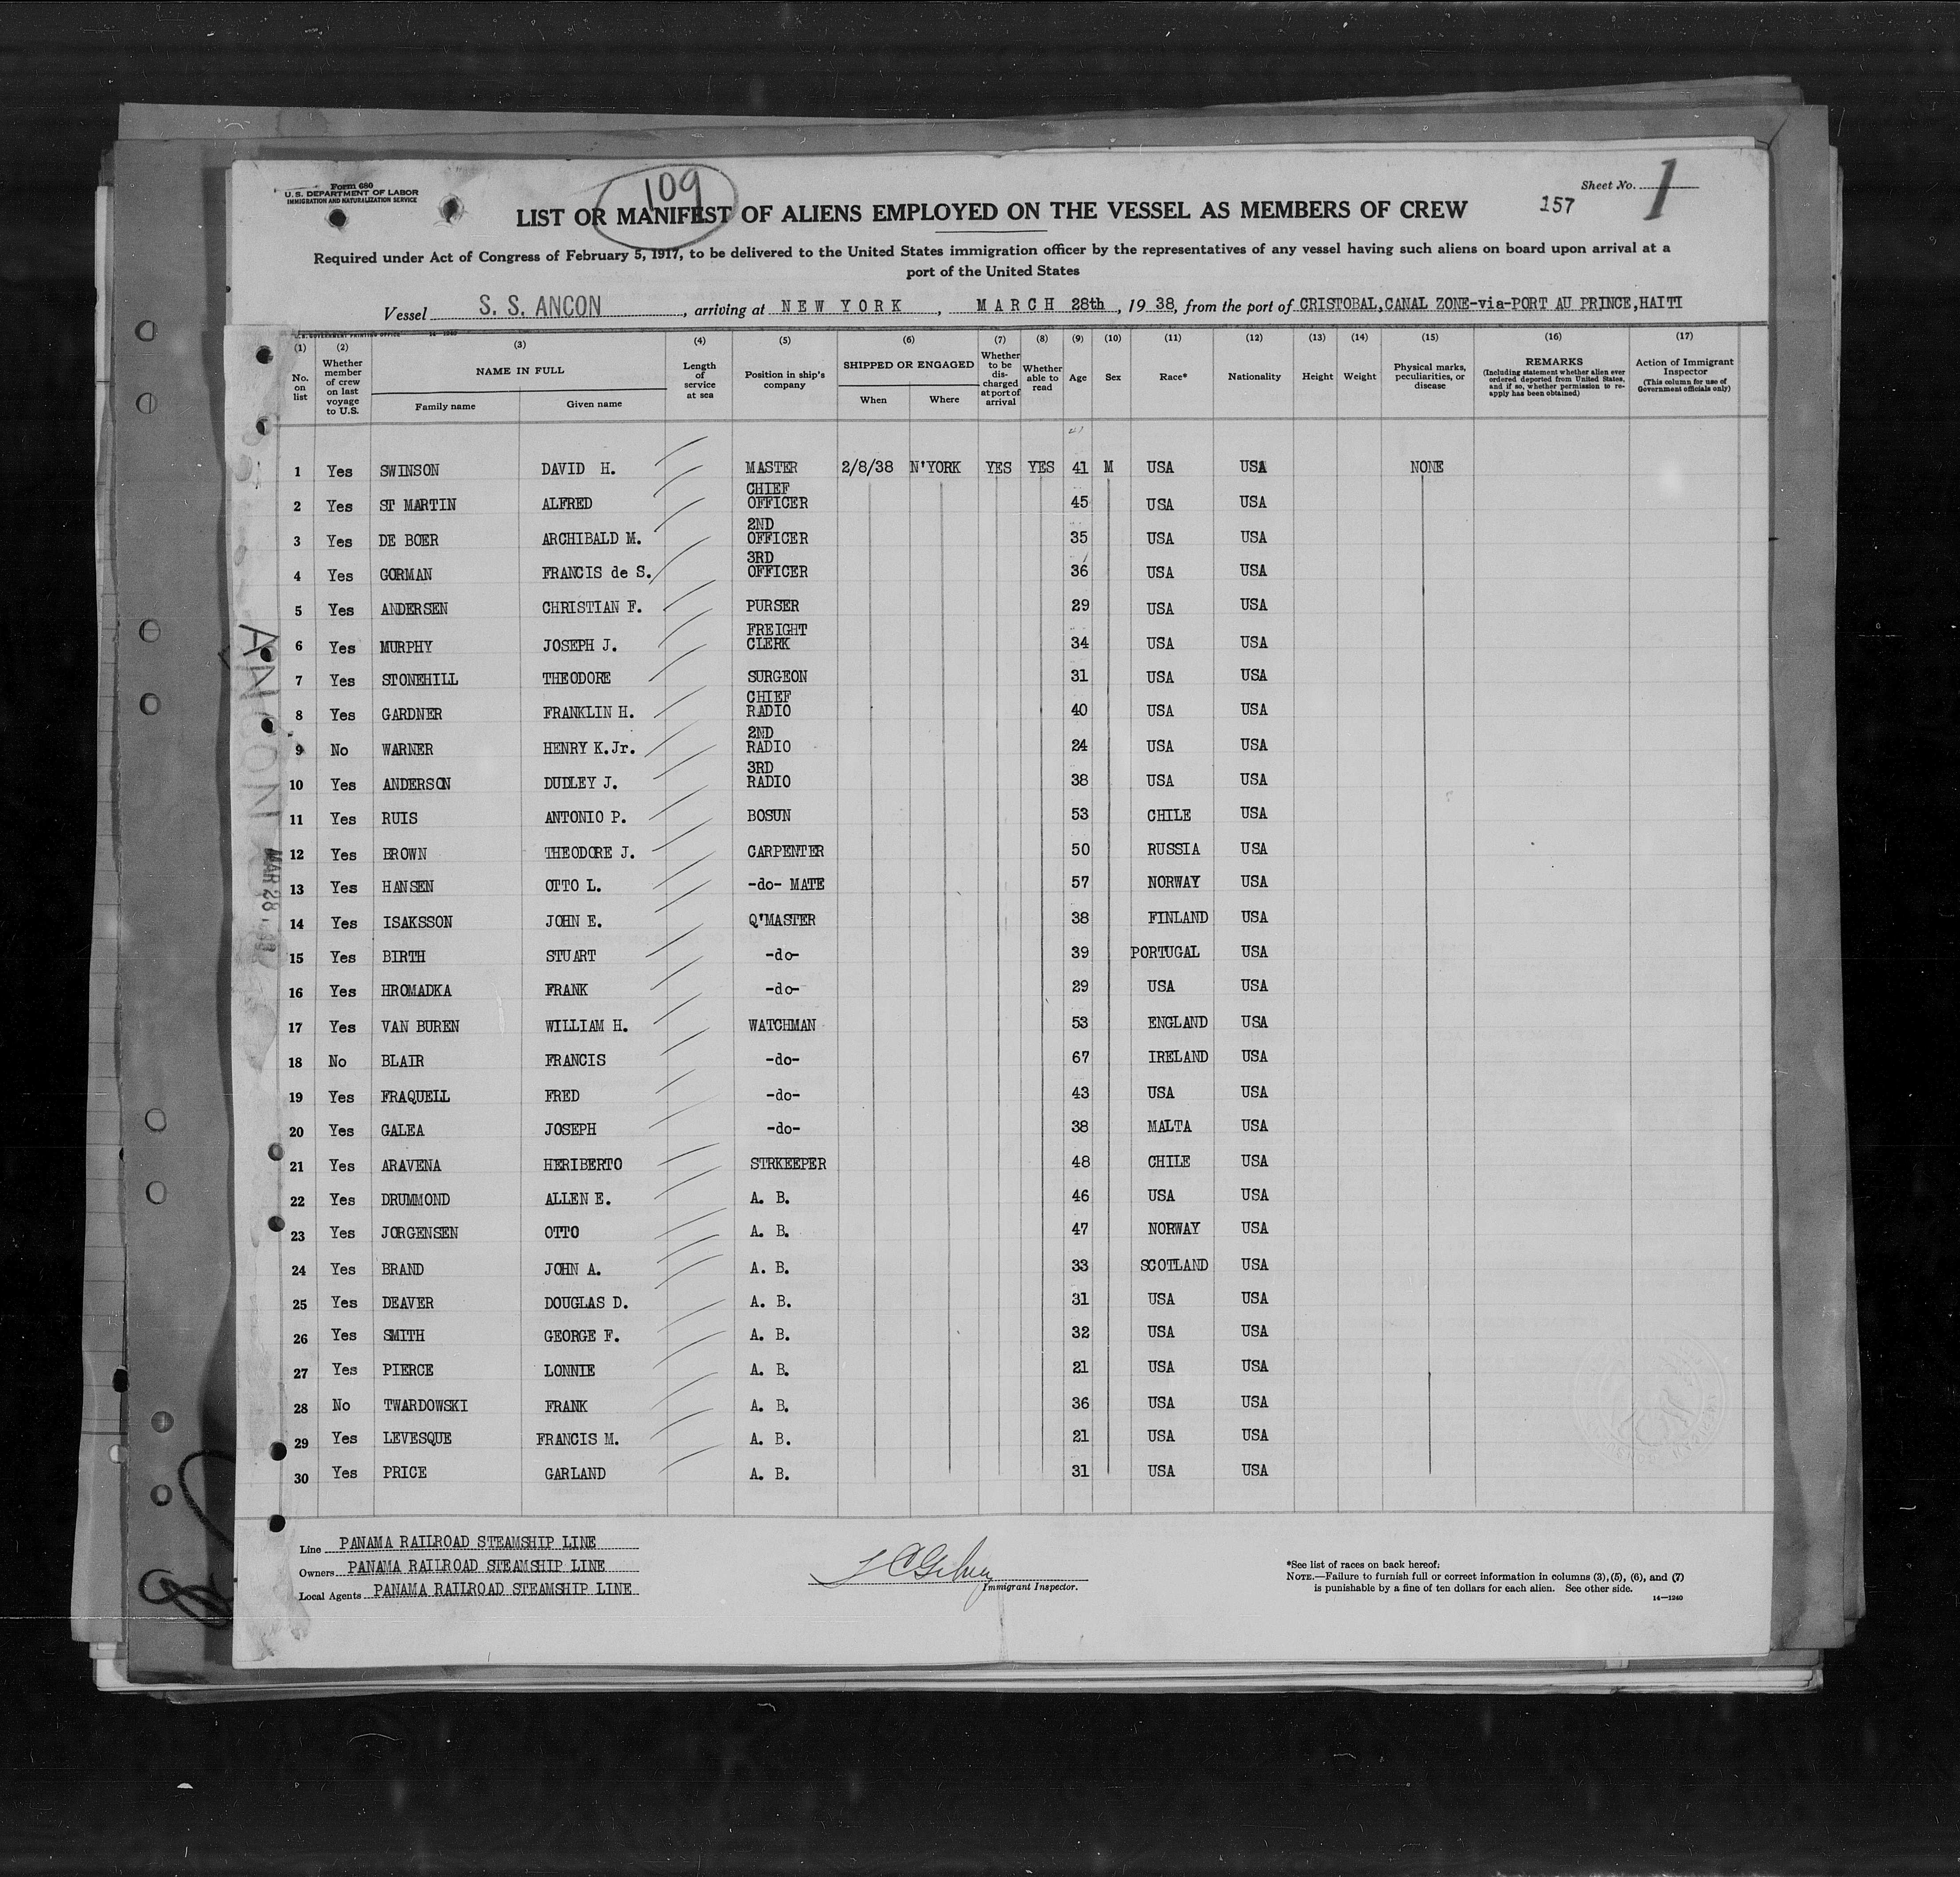 Form 680
U. S. DEPARTMENT OF LABOR
IMMIGRATION AND NATURALIZATION SERVICE
109
Sheet No. 1
157
LIST OR MANIFEST OF ALIENS EMPLOYED ON THE VESSEL AS MEMBERS OF CREW
Required under Act of Congress of February 5, 1917, to be delivered to the United States immigration officer by the representatives of any vessel having such aliens on board upon arrival at a
port of the United States
Vessel S. S. ANCON, arriving at NEW YORK, MARCH 28th, 1938, from the port of CRISTOBAL,CANAL ZONE-via-PORT AU PRINCE,HAITI
U.S. GOVERNMENT PRINTING OFFICE 14—1240
(1) (2) (3) (4) (5) (6) (7) (8) (9) (10) (11) (12) (13) (14) (15) (16) (17)
No. on list
Whether member of crew on last voyage to U.S.
NAME IN FULL
Family name
Given name
Length of service at sea
Position in ship's company
SHIPPED OR ENGAGED
When
Where
Whether to be discharged at port of arrival
Whether able to read
Age
Sex
Race*
Nationality
Height
Weight
Physical marks, peculiarities, or disease
REMARKS
(Including statement whether alien ever ordered deported from United States, and if so, whether permission to re-apply has been obtained)
Action of Immigrant Inspector
(This column for use of Government officials only)
1 Yes SWINSON DAVID H. MASTER 2/8/38 N'YORK YES YES 41 M USA USA NONE
2 Yes ST MARTIN ALFRED CHIEF OFFICER 45 USA USA
3 Yes DE BOER ARCHIBALD M. 2ND OFFICER 35 USA USA
4 Yes GORMAN FRANCIS de S. 3RD OFFICER 36 USA USA
5 Yes ANDERSEN CHRISTIAN F. PURSER 29 USA USA
6 Yes MURPHY JOSEPH J. FREIGHT CLERK 34 USA USA
7 Yes STONEHILL THEODORE SURGEON 31 USA USA
8 Yes GARDNER FRANKLIN H. CHIEF RADIO 40 USA USA
9 No WARNER HENRY K.Jr. 2ND RADIO 24 USA USA
10 Yes ANDERSON DUDLEY J. 3RD RADIO 38 USA USA
11 Yes RUIS ANTONIO P. BOSUN 53 CHILE USA
12 Yes BROWN THEODORE J. CARPENTER 50 RUSSIA USA
13 Yes HANSEN OTTO L. -do- MATE 57 NORWAY USA
14 Yes ISAKSSON JOHN E. Q'MASTER 38 FINLAND USA
15 Yes BIRTH STUART -do- 39 PORTUGAL USA
16 Yes HROMADKA FRANK -do- 29 USA USA
17 Yes VAN BUREN WILLIAM H. WATCHMAN 53 ENGLAND USA
18 No BLAIR FRANCIS -do- 67 IRELAND USA
19 Yes FRAQUELL FRED -do- 43 USA USA
20 Yes GALEA JOSEPH -do- 38 MALTA USA
21 Yes ARAVENA HERIBERTO STRKEEPER 48 CHILE USA
22 Yes DRUMMOND ALLEN E. A. B. 46 USA USA
23 Yes JORGENSEN OTTO A. B. 47 NORWAY USA
24 Yes BRAND JOHN A. A. B. 33 SCOTLAND USA
25 Yes DEAVER DOUGLAS D. A. B. 31 USA USA
26 Yes SMITH GEORGE F. A. B. 32 USA USA
27 Yes PIERCE LONNIE A. B. 21 USA USA
28 No TWARDOWSKI FRANK A. B. 36 USA USA
29 Yes LEVESQUE FRANCIS M. A. B. 21 USA USA
30 Yes PRICE GARLAND A. B. 31 USA USA
ANCON
MAR 28
Line PANAMA RAILROAD STEAMSHIP LINE
Owners PANAMA RAILROAD STEAMSHIP LINE
Local Agents PANAMA RAILROAD STEAMSHIP LINE
Immigrant Inspector.
*See list of races on back hereof.
NOTE.—Failure to furnish full or correct information in columns (3), (5), (6), and (7)
is punishable by a fine of ten dollars for each alien. See other side.
14—1240